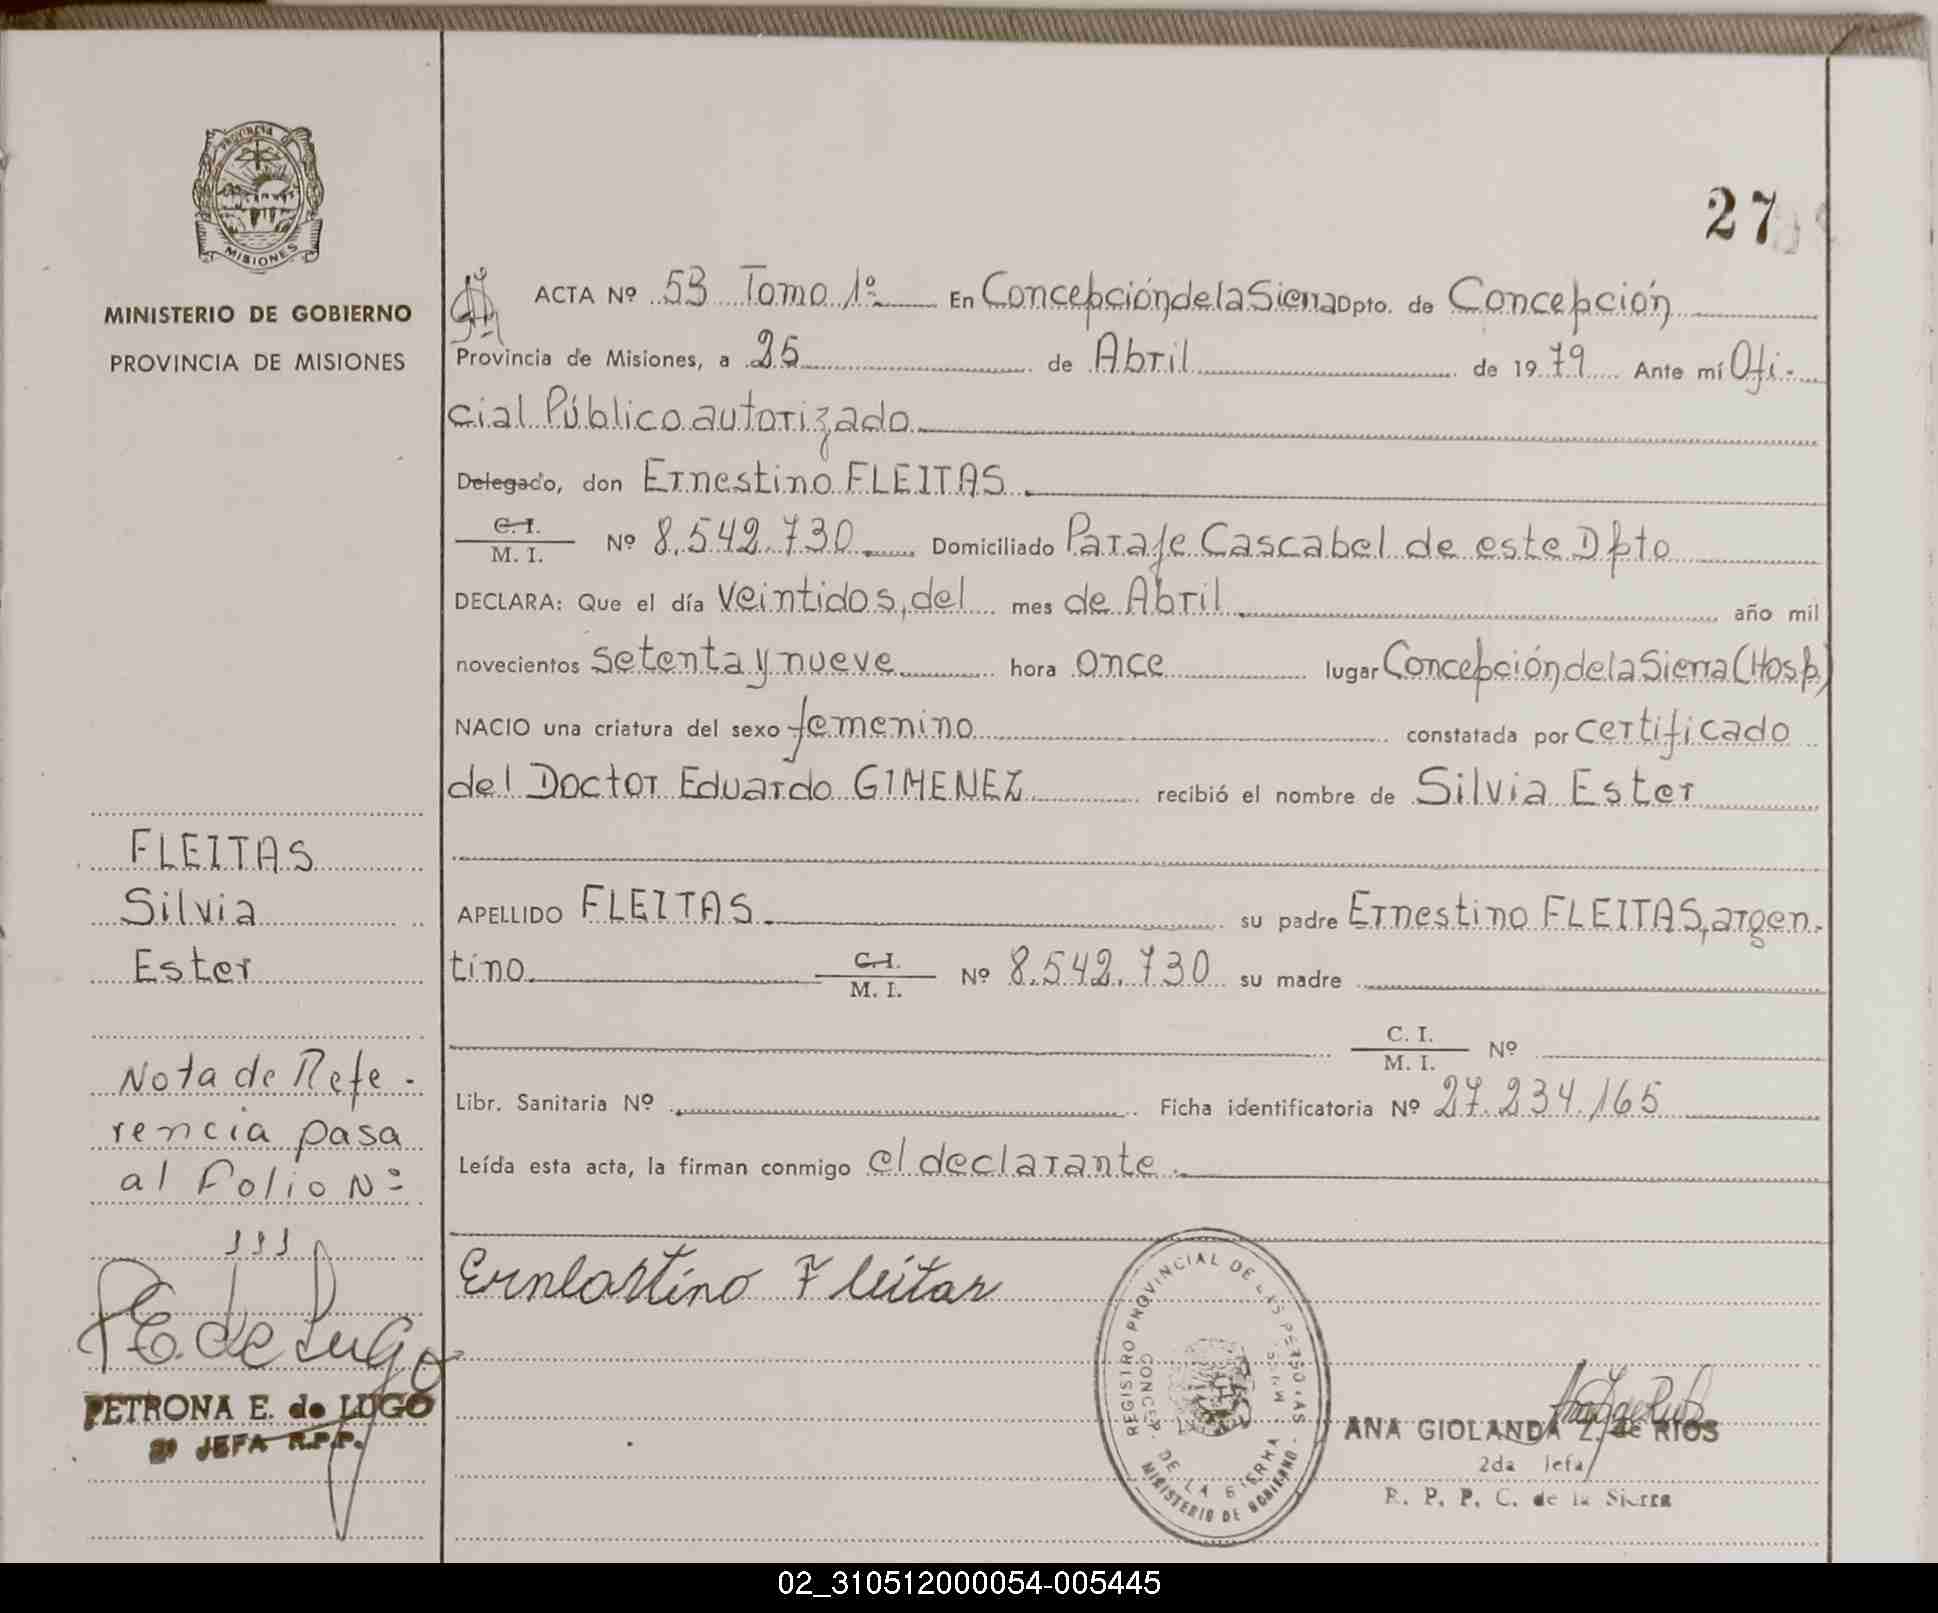 PROVINCIA D
MISIONES
MINISTERIO DE GOBIERNO
PROVINCIA DE MISIONES
FLEITAS
Silvia
Ester
Nota de Refe-
rencia pasa
al Folio Nº
111
P E. de Lugo
PETRONA E. de LUGO
2ª JEFA R.P.P.
27
ACTA Nº 53 Tomo 1º En Concepción de la Sierra Dpto. de Concepción
Provincia de Misiones, a 25 de Abril de 1979 Ante mí Ofi-
cial Público autorizado
Delegado, don Ernestino FLEITAS
C. I.
M. I. Nº 8.542.730 Domiciliado Paraje Cascabel de este Dpto
DECLARA: Que el día veintidos, del mes de Abril año mil
novecientos setenta y nueve hora once lugar Concepción de la Sierra (Hosp)
NACIO una criatura del sexo femenino constatada por certificado
del Doctor Eduardo GIMENEZ recibió el nombre de Silvia Ester
APELLIDO FLEITAS su padre Ernestino FLEITAS, argen-
tino C. I. M. I. Nº 8.542.730 su madre
C. I.
M. I. Nº
Libr. Sanitaria Nº Ficha identificatoria Nº 27.234.165
Leída esta acta, la firman conmigo el declarante.
Ernlastino Fleitas
REGISTRO PROVINCIAL DE LAS PERSONAS
CONCEP. DE LA SIERRA
MINISTERIO DE GOBIERNO
ANA GIOLANDA Z. de RIOS
2da Jefa
R. P. P. C. de la Sierra
02_310512000054-005445